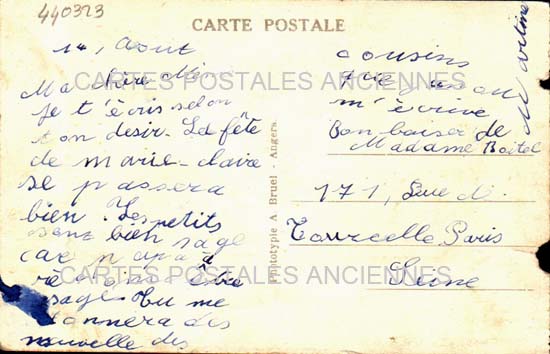 440323
CARTE POSTALE
14, Aout
Ma chère
je t'écris selon
ton desir. La fête
de marie-claire
se passera
bien. Les petits
sont bien sage
car papa
être
sage. Tu me
donnera des
nouvelle des
cousins
que
m'écrive
Bon baiser de
Madame Boitel
171, Rue de
Courcelle Paris
Seine
Phototypie A. Bruel - Angers.
CARTES POSTALES ANCIENNES
CARTES POSTALES ANCIENNES